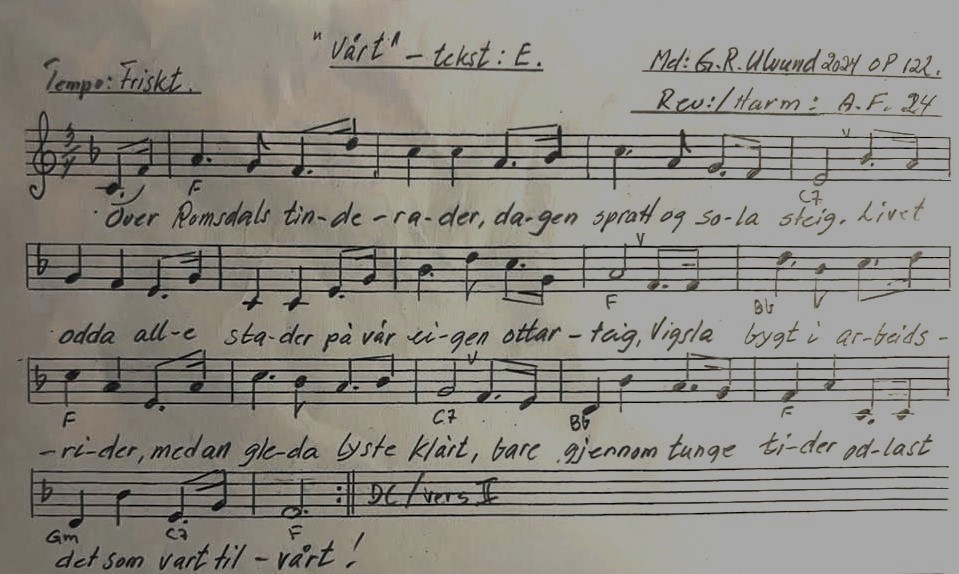 "Vårt" – tekst: E.
Tempo: Friskt.
Md: G.R. Ulvund 2024 OP 122.
Rev:/Harm: A.F. 24
3/4
F C7
Over Romsdals tin-de-ra-der, da-gen spratt og so-la steig. Livet
F Bb
odda all-e sta-der på vår ei-gen ottar-teig, Vigsla bygt i ar-beids-
F C7 Bb F
-ri-der, medan gle-da lyste klårt, bare gjennom tunge ti-der od-last
DC/vers II
Gm C7 F
det som vart til-vårt!